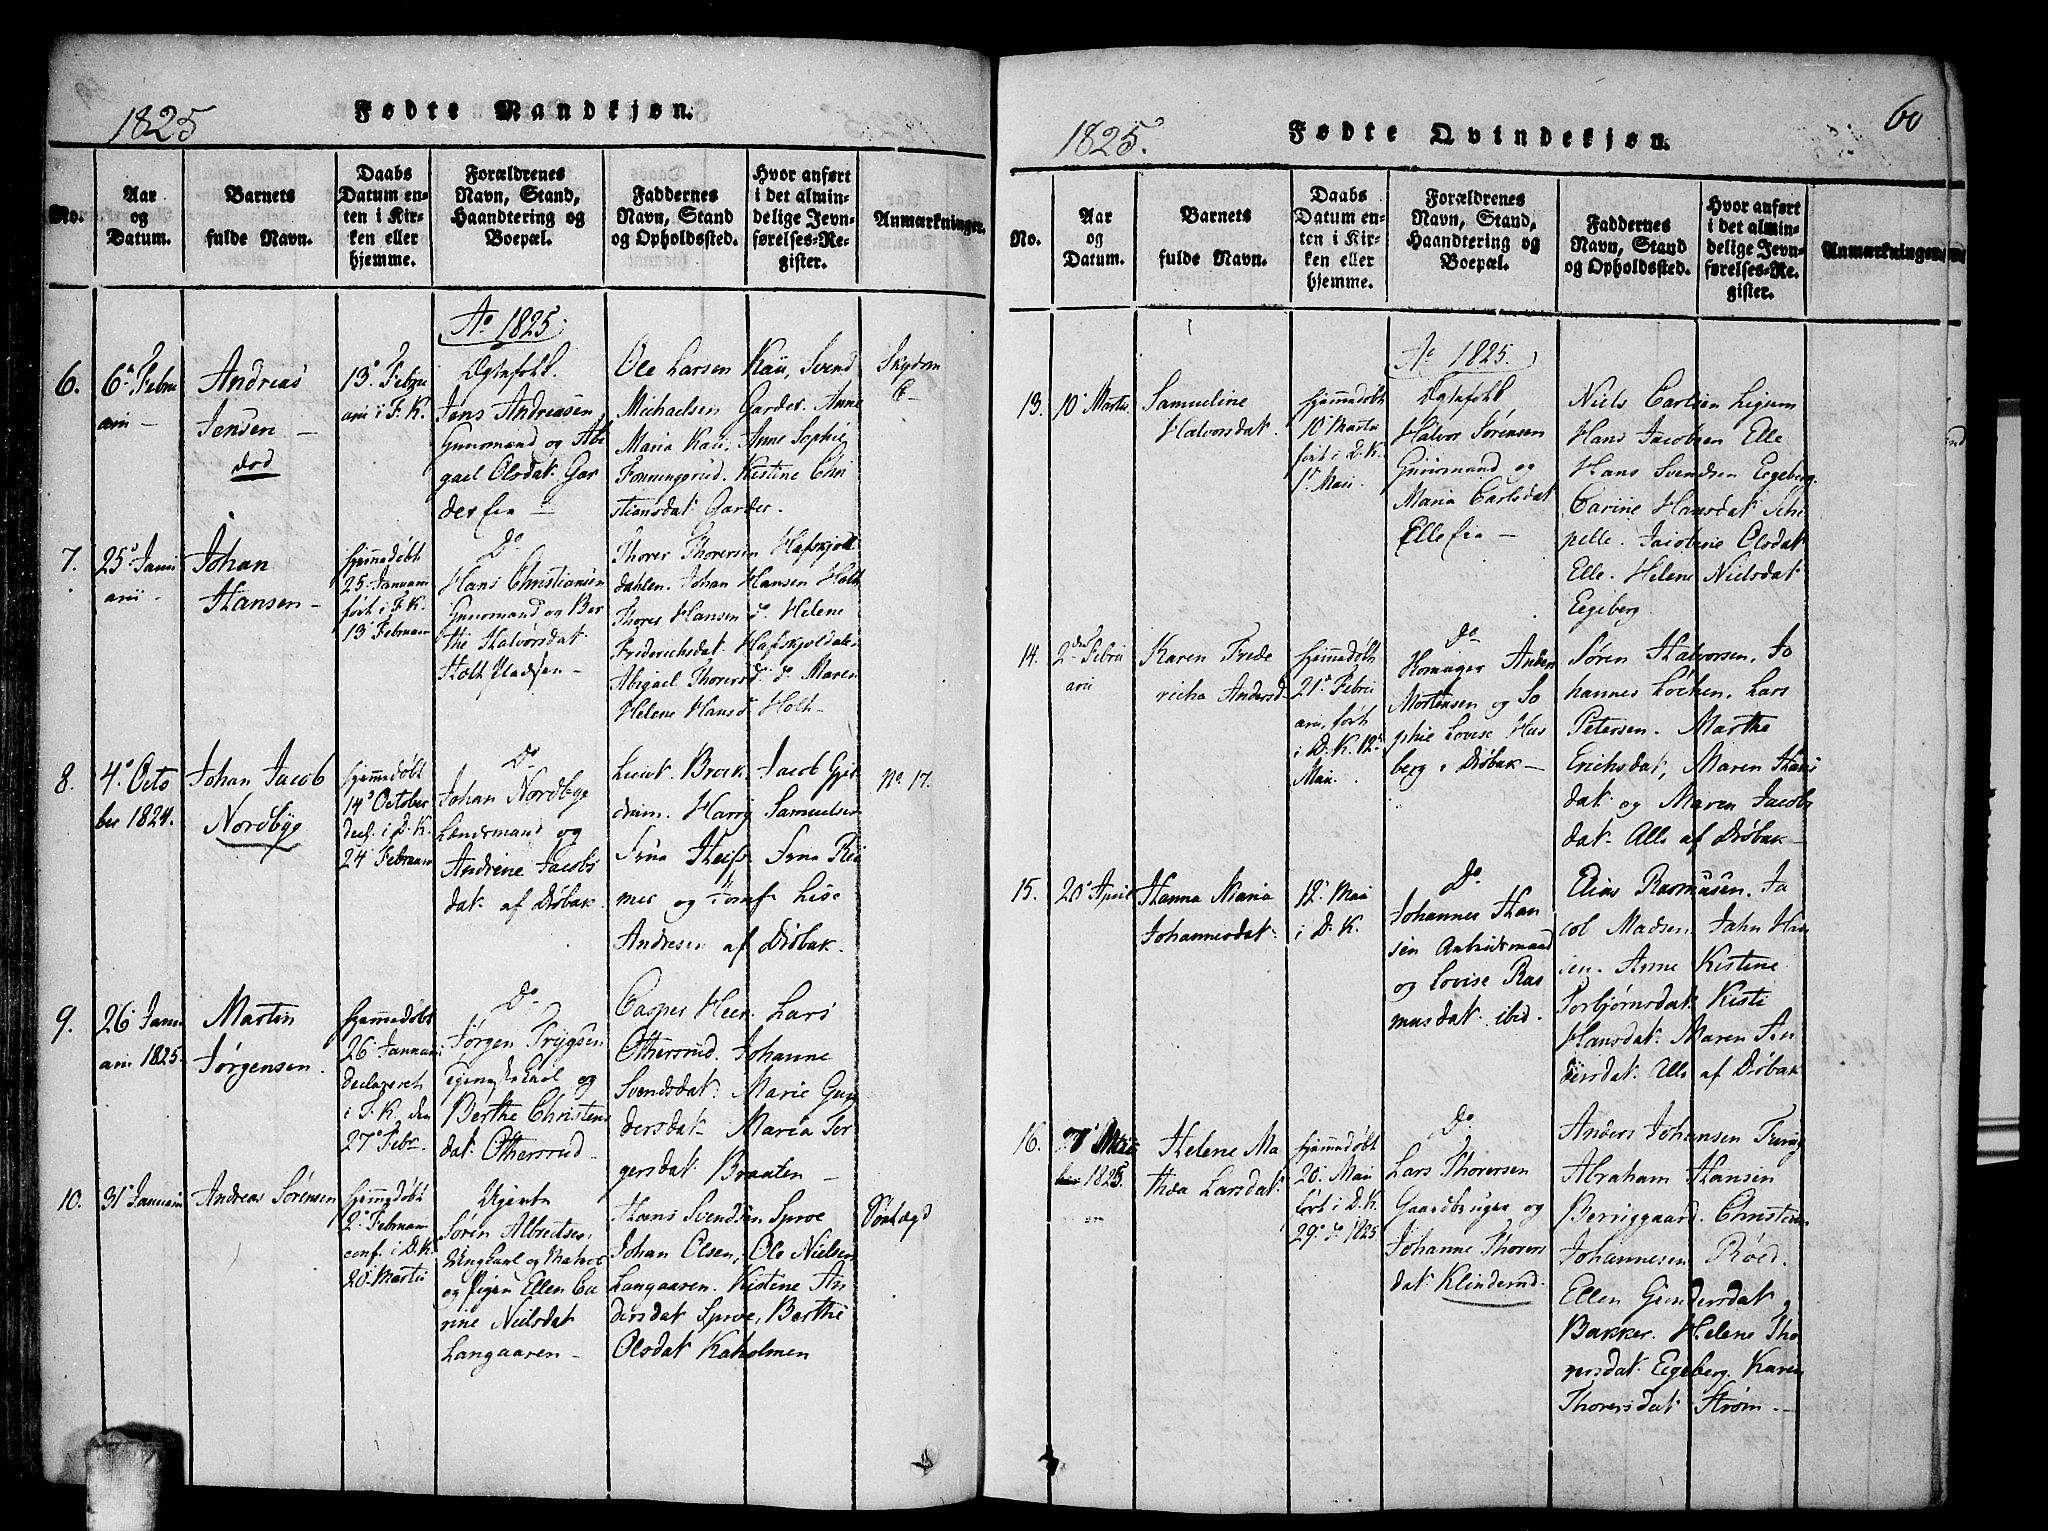 1825
Fødte Mandkjøn.
No.
Aar
og
Datum.
Barnets
fulde Navn.
Daabs
Datum en-
ten i Kir-
ken eller
hjemme.
Forældrenes
Navn, Stand,
Haandtering og
Boepæl.
Faddernes
Navn, Stand
og Opholdssted.
Hvor anført
i det almin-
delige Jevn-
førelses-Re-
gister.
Anmærkninger.
Ao 1825
6.
6. Febru
arii
Andreas
Jensen
død
13. Febru
arii i F. K.
Ægtefolk
Jens Andreasen
og Abi
gael Olsdat. Gar
der
Ole Larsen Kaü, Svend
Michaelsen Garder. Anne
Maria Kaü, Anne Sophie
Kistine Chri
stiansdat Garder.
7.
25. Janu
arii
Johan
Hansen
hjemmedøbt
25. Januarii
ført i F. K.
13. Februarii
Do
Hans Christiansen
og Ber
the Halvorsdat.
Holt
Thorer Thoresen Hafskjold
dahlen. Johan Hansen Holth
Thores Hansen do Helene
Frederichsdat Hafskjoldalen
Abigael Thoresd do Maren
Helene Hansd Holth
8.
4. Octo
ber 1824.
Johan Jacob
Nordbye
hjemmedøbt
14. October
decl. i D. K.
24 Februarii
Do
Johan Nordbye
Lændsmand og
Andrine Jacobs
dat. af Drøbak.
Lieut. Brock. Jacob
Samuelsen
og Jomf. Lise
Andresen af Drøbak.
No. 17.
9.
26. Janu
arii 1825.
Martin
Jørgensen.
hjemmedøbt
26 Januarii
declareret
i F. K. den
27. Febr.
Do
Jørgen Trygsen
og
Berthe Christens
dat. Ottersrud
Casper Heer. Lars
Ottersrud. Johanne
Svendsdat. Marie Gun
dersdat. Maria Tor
gersdat. Braaten
10.
31. Januarii
Andreas Sørensen
hjemmedøbt
2. Februarii
conf. i D. K.
20. Martii
Uægte
Søren Albretsen
Ungkarl og Matros
og Pigen Ellen Ca
rine Nielsdat
Langaaren
Hans Svendsen Sproe
Johan Olsen, Ole Nielsen
Langaaren. Kistine An
dersdat Sproe, Berthe
Olsdat Kaholmen
60
1825.
Fødte Qvindekjøn.
No.
Aar
og
Datum.
Barnets
fulde Navn.
Daabs
Datum en-
ten i Kir-
ken eller
hjemme.
Forældrenes
Navn, Stand,
Haandtering og
Boepæl.
Faddernes
Navn, Stand
og Opholdssted.
Hvor anført
i det almin-
delige Jevn-
førelses-Re-
gister.
Anmærkninger.
Ao 1825.
13.
10. Martii
Samueline
Halvorsdat.
hjemmedøbt
10 Martii
ført i D. K.
1. Maii
Ægtefolk
Halvor Sørensen
og
Maria Carlsdat
Elle
Niels Carlsen Ligum
Hans Jacobsen Elle
Hans Svendsen Eegeberg.
Carine Hansdat. Schi
pelle. Jacobine Olsdat
Elle. Helene Nielsdat
Eegeberg.
14.
2den Febru
arii
Karen Frede
richa Andersd
hjemmedøbt
21. Febru
arii, ført
i D. K. 12.
Maii.
Do
Anders
Mortensen og So
phie Lovise Hus
berg i Drøbak
Søren Halvorsen. Jo
hannes Løchen. Lars
Petersen. Marthe
Erichsdat, Maren Hans
dat. og Maren Jacobs
dat. Alle af Drøbak
15.
20 April
Hanna Maria
Johannesdat.
12. Maii
i D. K.
Do
Johannes Han
sen Arbeidsmand
og Lovise Ras
musdat. ibid.
Elias Rasmusen. Ja
cob Madsen. Jahn Han
sen. Anne Kistine
Torbjørnsdat. Kisti
Hansdat. Maren An
dersdat. Alle af Drøbak
16.
Maii
1825.
Helene Ma
thea Larsdat.
hjemmedøbt
20. Maii
ført i D. K.
29. 1825
Do
Lars Thoresen
Gaardbruger og
Johanne Thores
dat. Klinderud.
Anders Johansen
Abraham Hansen
Berggaard. Christian
Johannesen Røed.
Ellen Gundersdat
Bakker. Helene Tho
gersdat. Egeberg. Karen
Thoresdat Strøm.